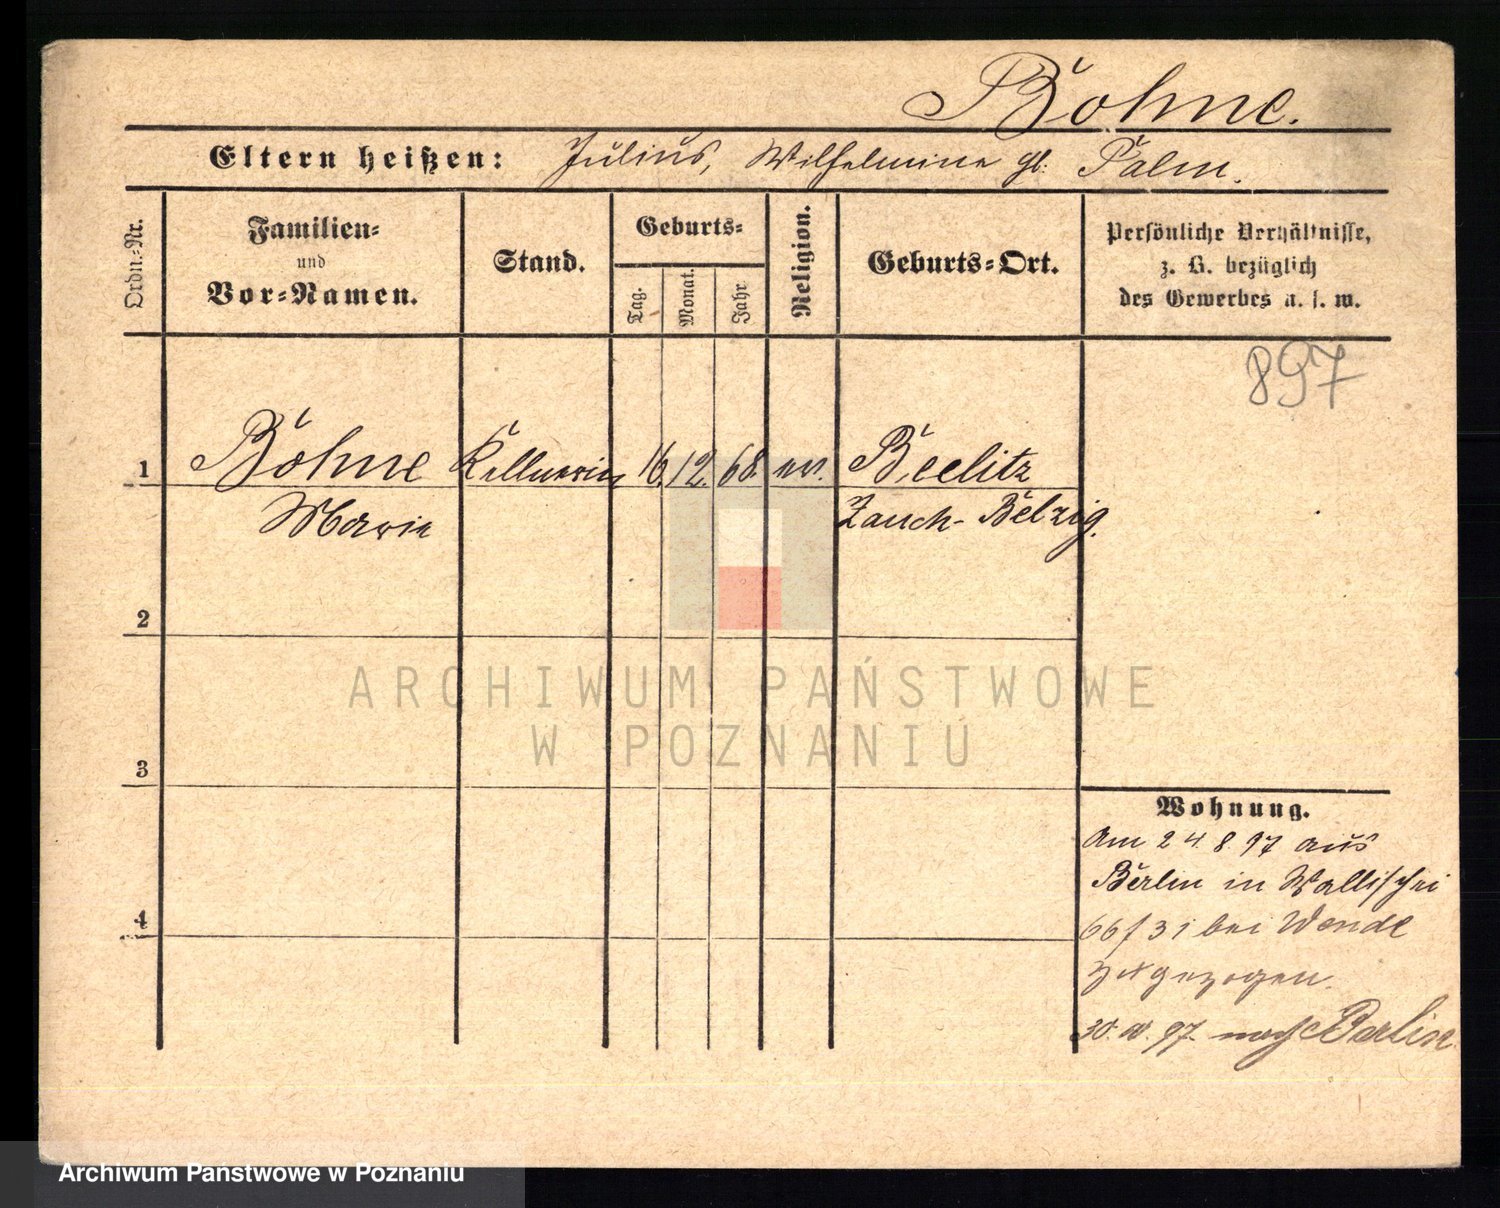 Bohne.
Eltern heißen: Julius, Wilhelmine gb. Palm.
Ordn.-Nr.
Familien- und Vor-Namen.
Stand.
Geburts-
Tag. Monat. Jahr
Religion.
Geburts-Ort.
Persönliche Verhältnisse,
z. B. bezüglich
des Gewerbes u. s. w.
897
1 Bohne Kellnerin 16. 12. 68. ev. Beelitz
Marie Zauch-Belzig.
2
3
4
Wohnung.
Am 24.8.97 aus
Berlin in Wallischei
66/31 bei Wende
zugezogen.
97. nach Berlin
ARCHIWUM PAŃSTWOWE
W POZNANIU
Archiwum Państwowe w Poznaniu